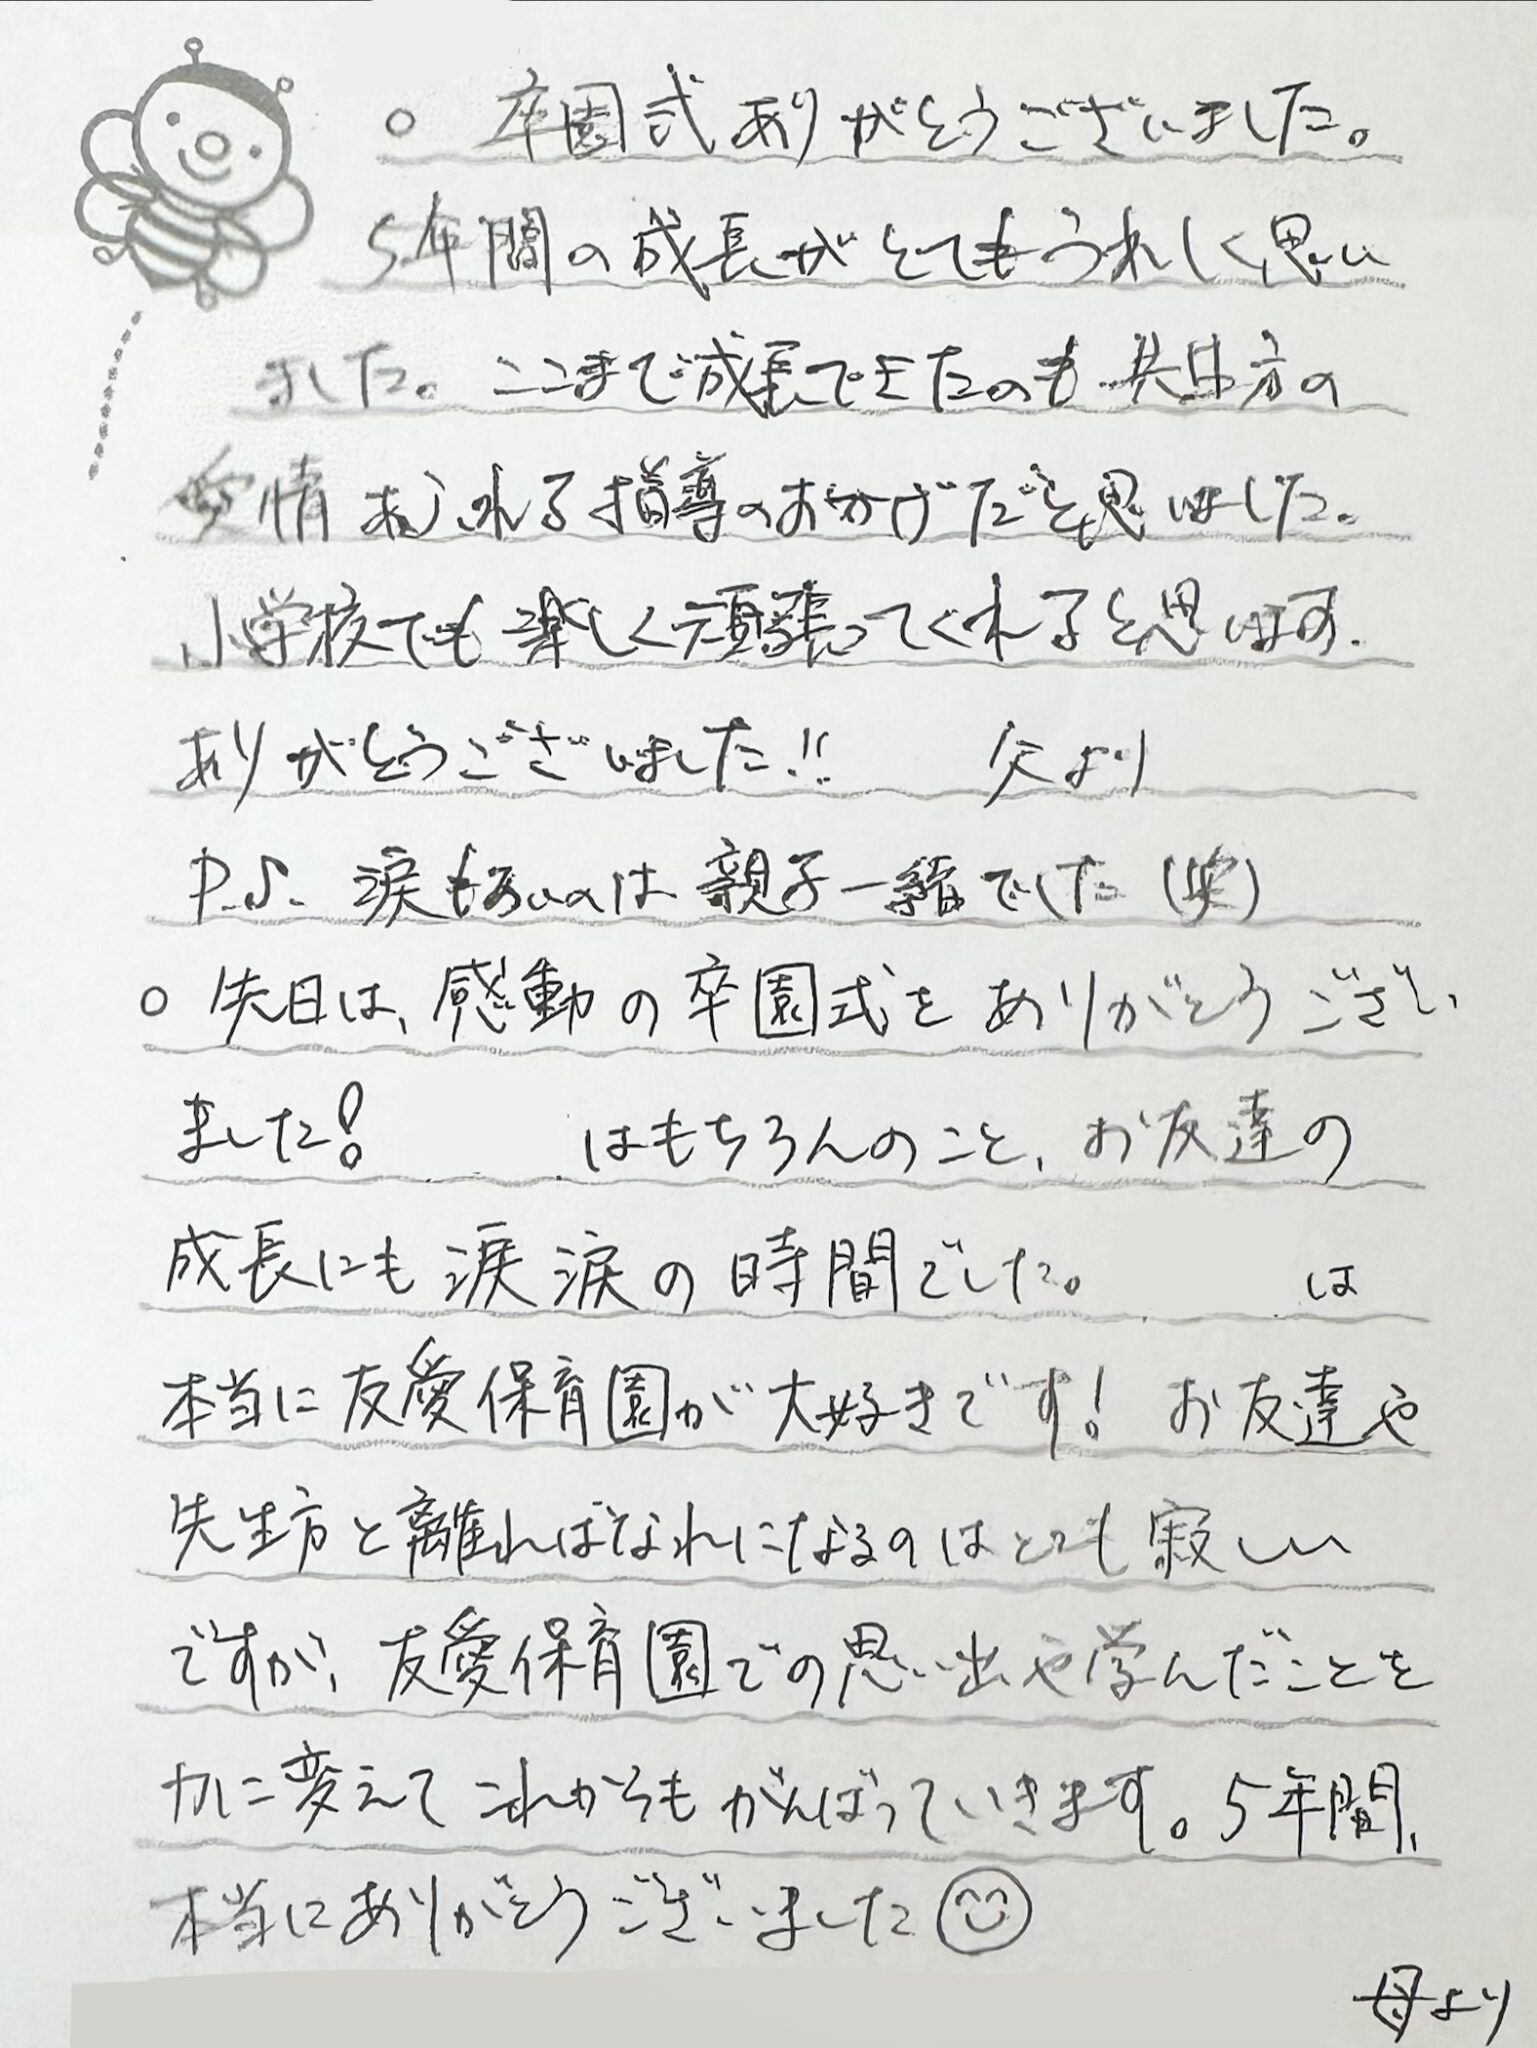 ○ 卒園式ありがとうございました。
5年間の成長がとてもうれしく思い
ました。ここまで成長できたのも先生方の
愛情あふれる指導のおかげだと思いました。
小学校でも楽しく頑張ってくれると思います。
ありがとうございました!! 父より
P.S. 涙もろいのは親子一緒でした(笑)
○ 先日は、感動の卒園式をありがとうござい
ました! はもちろんのこと、お友達の
成長にも涙涙の時間でした。 は
本当に友愛保育園が大好きです! お友達や
先生方と離ればなれになるのはとても寂しい
ですが、友愛保育園での思い出や学んだことを
力に変えてこれからもがんばっていきます。5年間、
本当にありがとうございました
母より